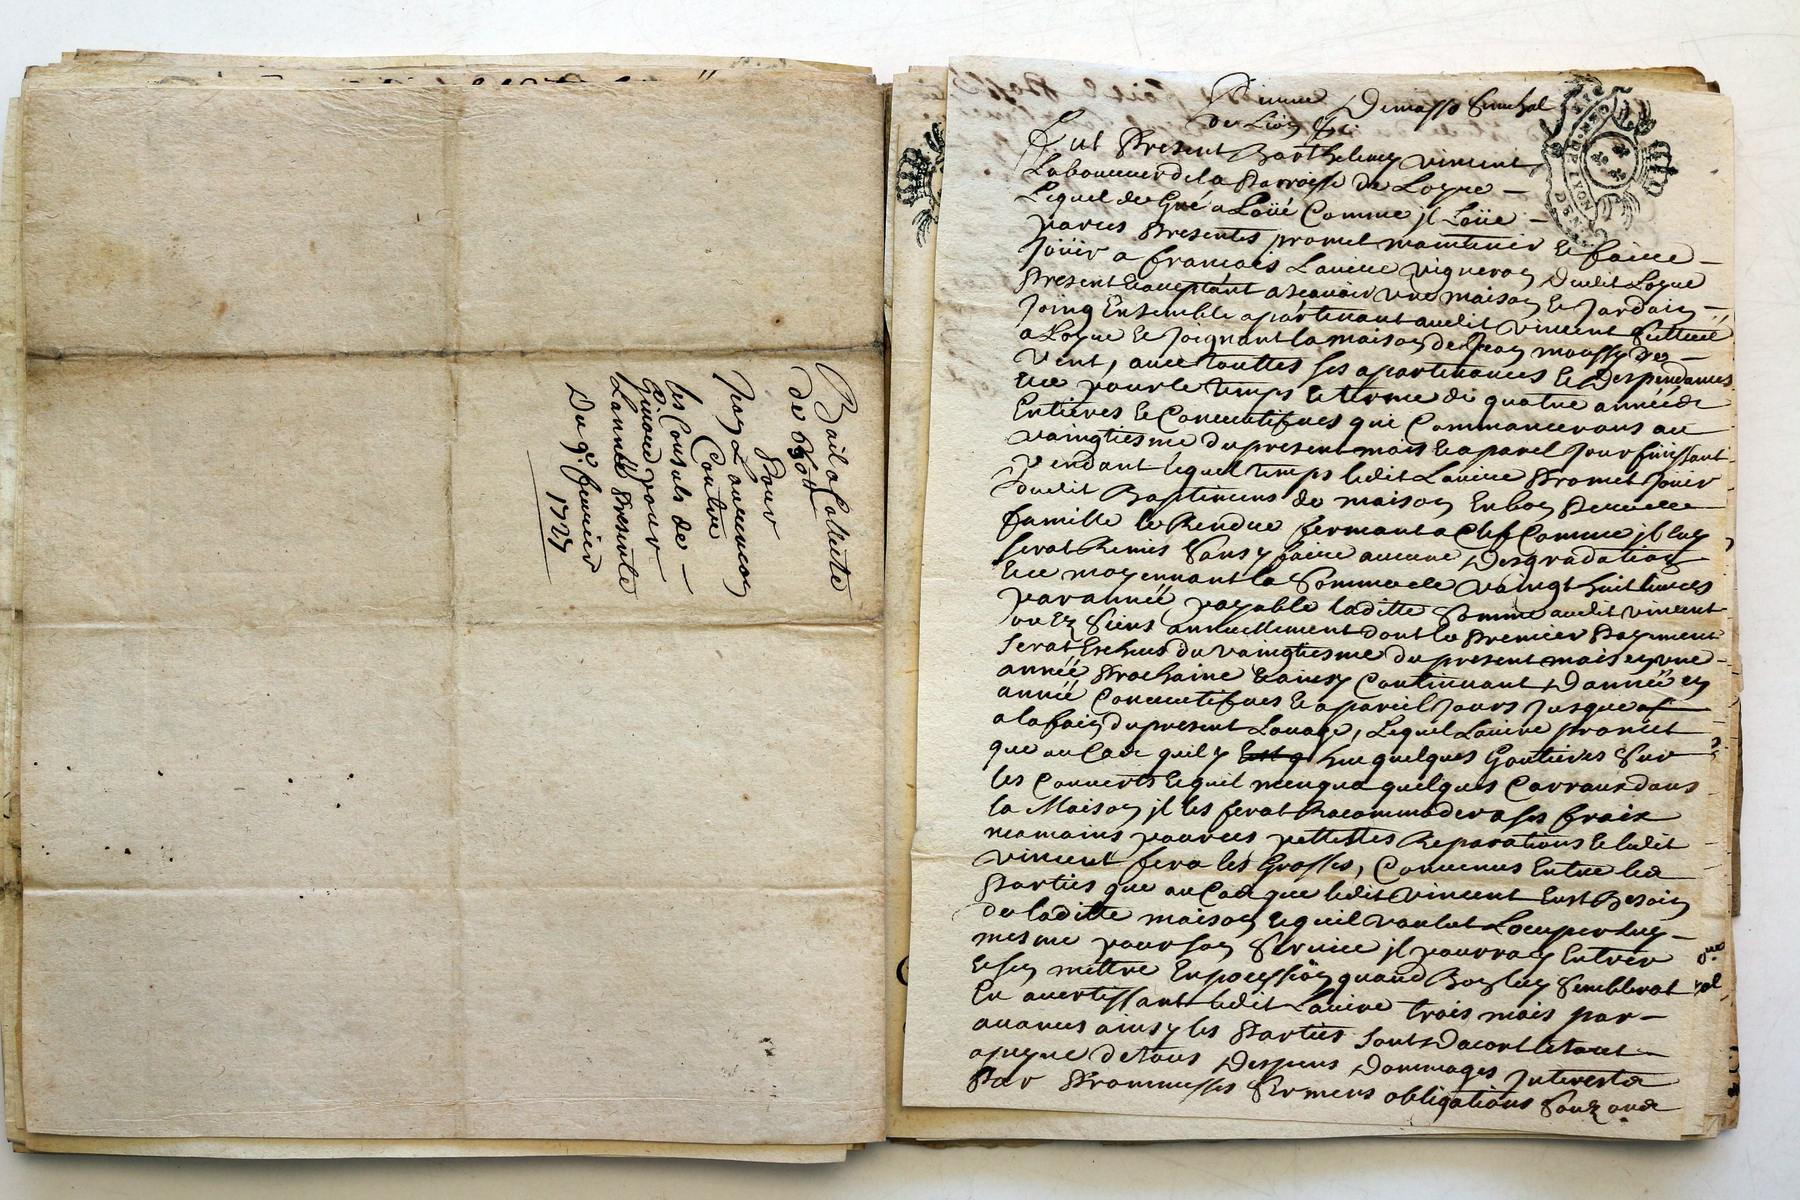 Bail a Collecte
de 650ᵗᵗ
Pour
Contre
les Consuls de
pour
Lannée Presente
Du 9ᵉ fevrier
1727
Fut Present Barthelemy vincent
Laboureur de la Parroisse de Loyse
Lequel de Gré a Loüé Comme jl Loüe
par ces Presentes promet maintenir Et faire
Joüir a francois Laviere vigneron dudit Loyse
Present Et acceptant asçavoir une maison Et Jardain
Joing Ensemble apartenant audit vincent scittué
a Loyse Et Joignant la maison de Jean moussy de
vent, avec touttes ses apartenances Et Despendances
Ece pour le temps Et terme de quatre annéés
Entieres Et Consecutifves qui Commancerons au
vaingtiesme du present mois Et a parel Jour finissant
Pendant lequel temps ledit Laviere Promet Jouir
dudit Baptimens de maison En bon Pere de
famille le Rendre fermant a Clef Comme jl luy
serat Remis sans y faire aucune Desgradation
Ece moyennant la Somme de vaingt huit livres
par année payable laditte Somme audit vincent
ou Ez siens annuellement dont le Premier Payment
serat Escheus du vaingtiesme du present mois en une
année Prochaine Et ainsy Continuant D'année en
année Consecutifves Et a pareil Jours Jusque
a la fain du present Louage, Lequel Laviere promet
que au Cas quil y heu quelques Goutieres Sur
les Couverts Et quil menqua quelques Carraux dans
la Maison jl les ferat Racommoder a ses fraix
neamains pour ces pettittes Reparations Et ledit
vincent fera les Grosses, Convenus Entre les
Parties que au Cas que ledit Vincent Eust Besoin
de laditte maison Et quil voulut Loccuper luy
mesme pour son Service jl pourray Entrer
Et sen mettre En possession quand Bon luy Semblerat
En avertissant ledit Laviere trois mois par
avances ainsy les Parties sont Dacort
a peyne de tous Despens Dommages Interests
Par Prommesses Sermens obligations Souz